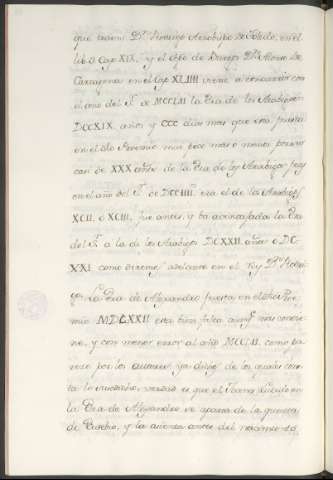 que traen Dⁿ Rodrigo Arzobispo de Toledo, en el
lib. Cap. XIX, y el Obpo de Burgos Dⁿ Alonso de
Cartagena en el Cap. XLIIII viene a concurrir con
el año del Sʳ de MCCLII la Era de los Arabigos
DCCXIX años y CCC dias mas que esta puesta
en el dho Proemio muy poco mas o menos porque
con de XXX años de la Era de los Arabigos pues
en el año del Sʳ de DCCIIII era el de los Arabigos
XCII o XCIII, fue antes, y ba aventajada la Era
del Sʳ a la de los Arabigos DCXXII años o DC.
XXI como diremos adelante en el Rey Dⁿ Rodri-
go. La Era de Alexandro puesta en el dho Proe-
mio MDLXXII esta bien falta aunqᵉ mas concier-
ne, y con menor error al año MCCLII. como pa-
rece por los autores ya dichos de los quales cons-
ta lo sucedido, verdad es que el
la Era de Alexandro se aparta de la quenta
de Eusebio, y la quenta antes del nacimiento